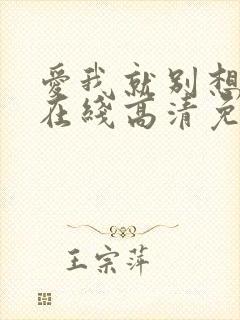 愛我就别想
在綫高清免
王宗萍